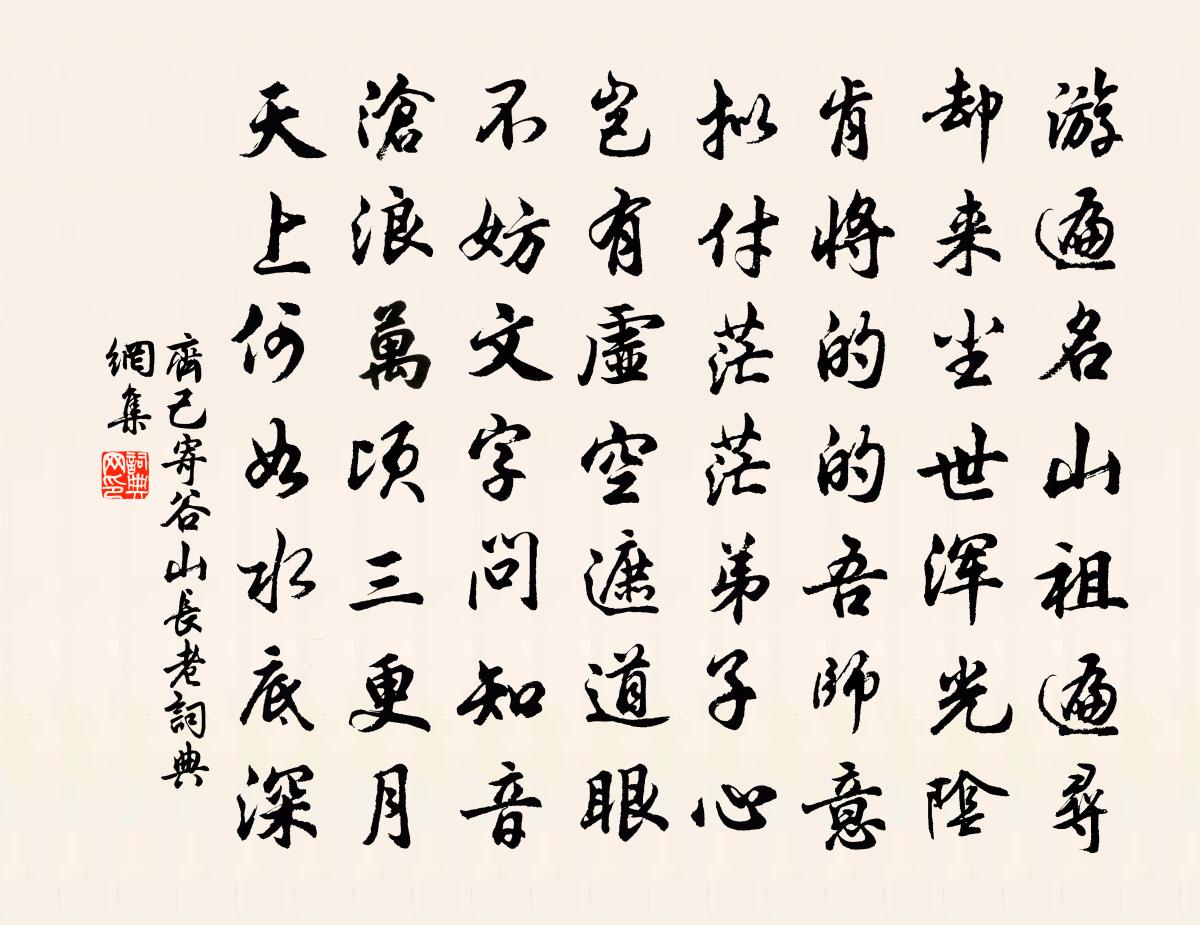 游遍名山祖遍尋
却来尘世浑光陰
肯將的的吾師意
拟付茫茫弟子心
岂有虛空遮道眼
不妨文字問知音
滄浪萬顷三更月
天上何如水底深
齊己寄谷山長老詞典
網集
詞典网印